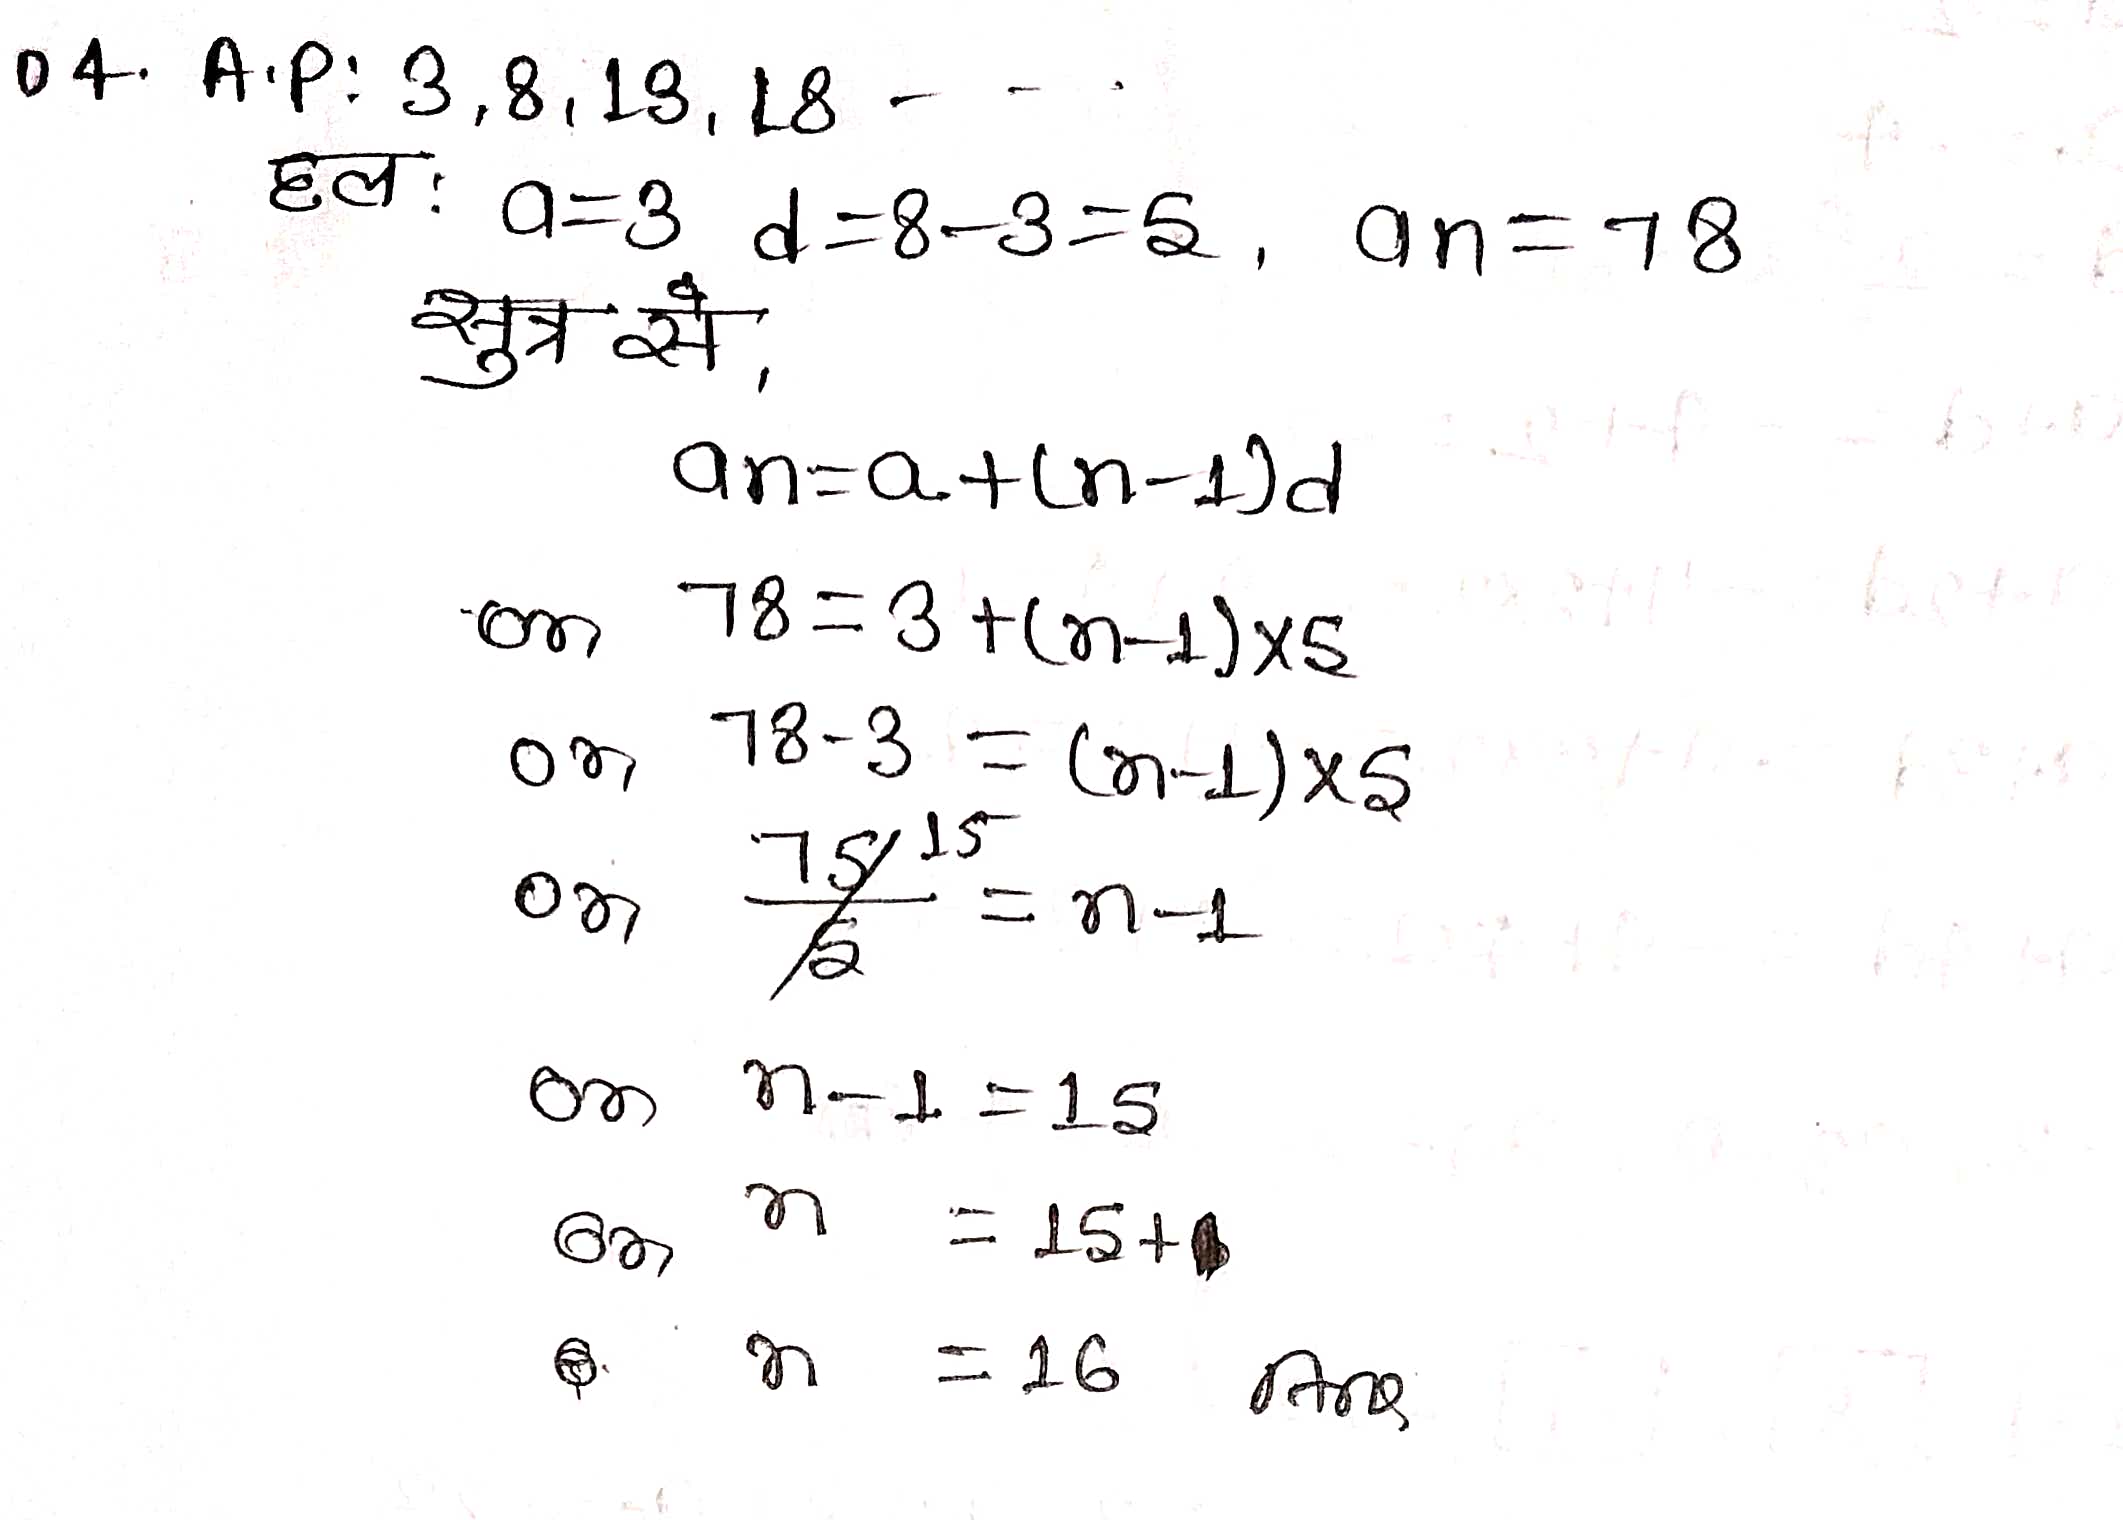 04. A.P: 3, 8, 13, 18 - - -
हल: a=3 d=8-3=5, an=78
सुत्र से,
an=a+(n-1)d
or 78=3+(n-1)x5
or 78-3=(n-1)x5
or 75/5 15 =n-1
or n-1=15
or n =15+1
n =16 Ans